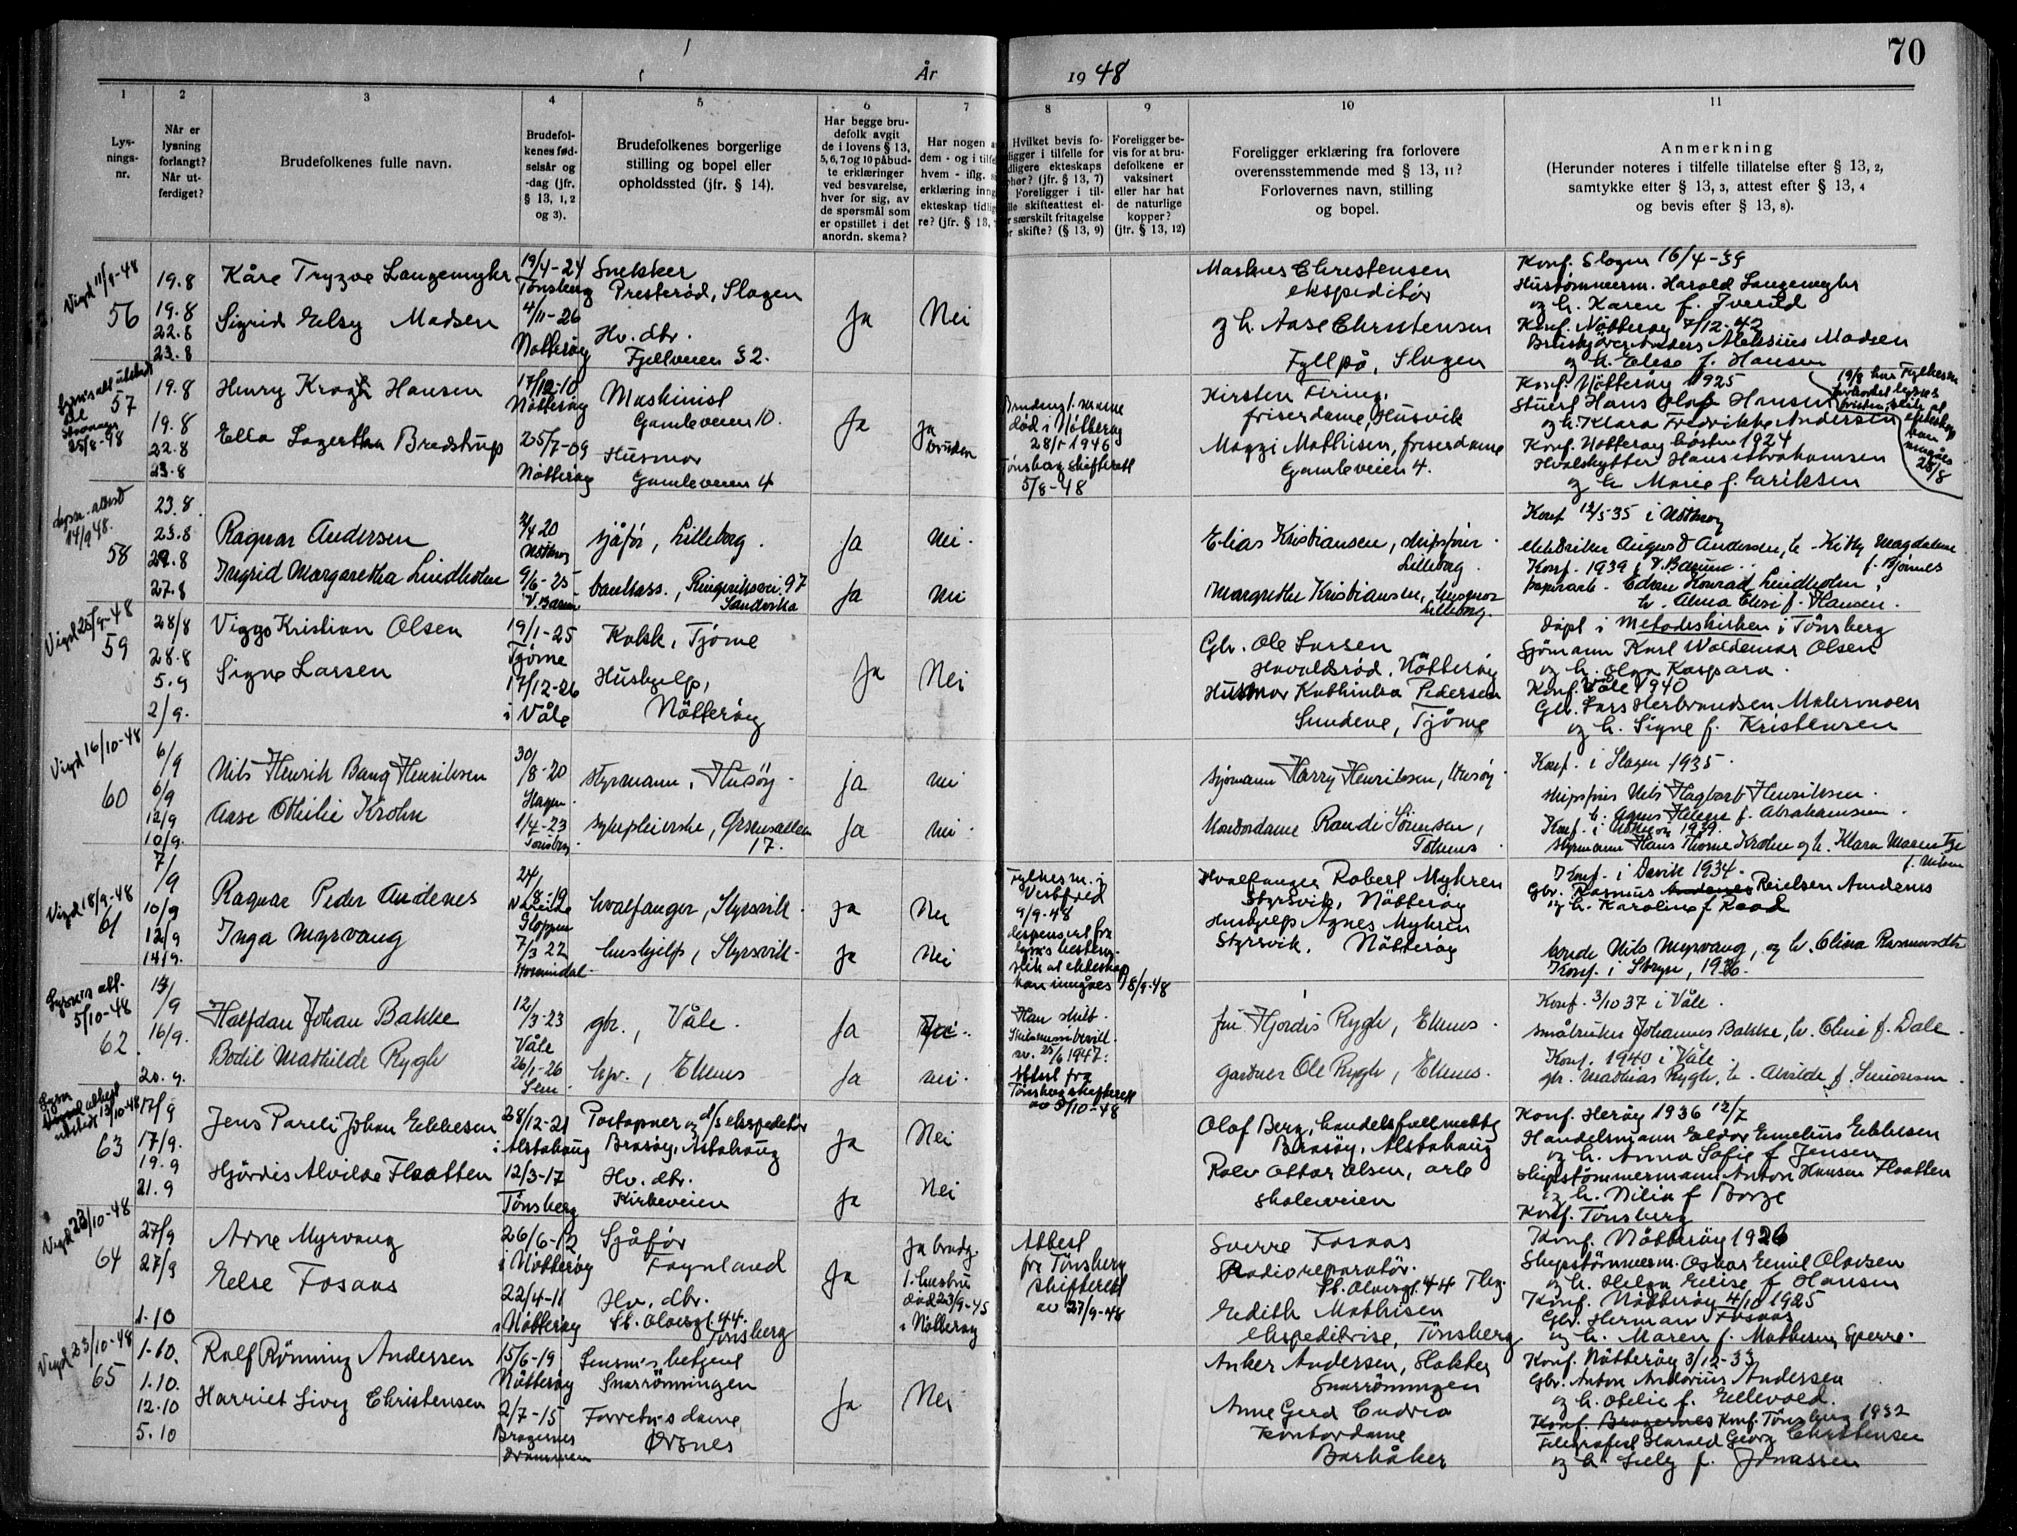 År 1948
70
1
2
3
4
5
6
7
8
9
10
11
Lys-
nings-
nr.
Når er
lysning
forlangt?
Når ut-
ferdiget?
Brudefolkenes fulle navn.
Brudefol-
kenes fød-
selsår og
-dag (jfr.
§ 13, 1, 2
og 3).
Brudefolkenes borgerlige
stilling og bopel eller
opholdssted (jfr. § 14).
Har begge bru-
defolk avgit
de i lovens § 13,
5, 6, 7 og 10 påbud-
te erklæringer
ved besvarelse,
hver for sig, av
de spørsmål som
er opstillet i det
anordn. skema?
Har nogen a
dem - og i tilfe
hvem - iflg. s
erklæring inng
ekteskap tidlig
re? (jfr. § 13,
Hvilket bevis fo-
ligger i tilfelle for
dligere ekteskaps
phør? (jfr. § 13, 7)
Foreligger i til-
lle skifteattest el-
r særskilt fritagelse
or skifte? (§ 13, 9)
Foreligger be-
vis for at bru-
defolkene er
vaksinert
eller har hat
de naturlige
kopper?
(jfr. § 13, 12)
Foreligger erklæring fra forlovere
overensstemmende med § 13, 11?
Forlovernes navn, stilling
og bopel.
Anmerkning
(Herunder noteres i tilfelle tillatelse efter § 13, 2,
samtykke etter § 13, 3, attest efter § 13, 4
og bevis efter § 13, 8).
Vigd 11/9-48
56
19.8
19.8
22.8
23.8
Kåre Trygve Langemyhr
Sigrid Elsy Madsen
19/4-24
Tønsberg
4/11-26
Nøtterøy
Snekker
Presterød, Slagen
Hv. dtr.
Fjellveien 32.
Ja
Nei
Markus Christensen
ekspeditør
og h. Aase Christensen
Fyllpå, Slagen
Konf. Slagen 16/4-39
Hustømmerm. Harald Langemyhr
og h. Karen f. Iverud
Konf. Nøtterøy 7/12-42
Anders Aleksius Madsen
og h. Elise f. Hansen
25/8-48
57
19.8
19.8
22.8
23.8
Henry Krogh Hansen
Ella Lagertha Bredstrup
17/12-10
Nøtterøy
25/7-09
Nøtterøy
Maskinist
Gamleveien 10.
Husmor
Gamleveien 4
Ja
Ja
bruden
død i Nøtterøy
28/5 1946
Tønsberg skifterett
5/8-48
Kirsten Firing,
friserdame, Husvik
Maggi Mathisen, friserdame
Gamleveien 4.
Konf. Nøtterøy 1925
Stuert Hans Olaf Hansen
og h. Klara Fredrikke Andersen
Konf. Nøtterøy høsten 1924
Hvalskytter Hans Abrahamsen
og h. Marie f. Eriksen
19/8 har Fylkesm.
28/8
14/9 48.
58
23.8
23.8
29.8
27.8
Ragnar Andersen
Ingrid Margaretha Lindholm
2/4 20
Nøtterøy
9/6-25
V. Bærum
sjåfør, Lilleborg.
bankass., Ringeriksvei. 97
Sandvika
Ja
Ja
Nei.
Nei
Elias Kristiansen, skipsfører.
Lilleborg.
Margrethe Kristiansen, husmor
Lilleborg.
Konf 12/5 35 i Nøtterøy
elektriker August Andersen, h. Kitty Magdalene
f. Bjønnes
Konf. 1939 i V. Bærum.
papirarb. Edvin Konrad Lindholm
h. Alma Elise f. Hansen.
Vigd 25/9-48
59
28/8
28.8
5.9
2/9.
Viggo Kristian Olsen
Signe Larsen
19/1-25
Tjøme
17/12-26
i Våle
Kokk, Tjøme
Hushjelp,
Nøtterøy
Ja
Nei
Gbr. Ole Larsen
Havaldsrød, Nøtterøy
Husmor Kathinka Pedersen
Sundene, Tjøme
Døpt i Metodistkirken i Tønsberg
Sjømann Karl Waldemar Olsen
og h. Olga Kaspara.
Konf. i Våle 1940
Gbr. Lars Herbrandsen Mahrmoen
og h. Signe f. Kristensen
Vigd 16/10-48
60
6/9
6/9
12/9
10/9.
Nils Henrik Bang Henriksen
Aase Othilie Krohn
30/8-20
Slagen.
1/4-23
Tønsberg
styrmann, Husøy.
sykepleierske, Ørsnesalleen
17.
Ja
Ja
nei
nei.
sjømann Harry Henriksen, Husøy.
Kontordame Randi Sørensen,
Tolvnes.
Konf. i Slagen 1935.
skipsfører Nils Hagbart Henriksen.
h: Agnes Helene f. Abrahamsen.
Konf. i Nøtterøy 1939.
styrmann Hans Thorne Krohn og h. Klara Maren Tye
f. Nilsen
Vigd 18/9-48
61
7/9
10/9
12/9
14/9.
Ragnar Peder Andenes
Inga Myrvang
24/8-19
Gloppen
7/3 22
Hornindal
hvalfanger, Styrsvik.
hushjelp, Styrsvik.
Ja
Ja
Nei
Nei
Fylkesm. i
Vestfold
9/9-48
dispensert fra
lysn's bestemm.
slik at ekteskap
kan inngåes 18/9-48
Hvalfanger Robert Myhren
Styrsvik, Nøtterøy
Hushjelp Agnes Myhren
Styrsvik, Nøtterøy
Konf. i Davik 1934.
Gbr. Rasmus Reielsen Andenes
og h. Karoline f. Raad
bonde Nils Myrvang, og h. Elina Rasmusdtr
Konf. i Stryn, 1936.
Lysn's att.
5/10-48
62.
14/9
16/9.
20.9.
Halfdan Johan Bakke
Bodil Mathilde Rygh
12/3-23
Våle
26/1-26
Sem.
gbr., Våle.
hpr., Eknes
Ja
Ja
nei.
Han skilt.
Skilsmissebevill.
av. 25/6 1947.
Attest fra
Tønsberg skifterett
av 5/10-48
frk. Hjørdis Rygh, Eknes.
gartner Ole Rygh, Eknes.
Konf. 3/10 37 i Våle.
småbruker Johannes Bakke, h. Oline f. Dale.
Konf. 1940 i Våle
gbr. Mathias Rygh, h. Alvilde f. Simonsen.
Lysn
utstedt 13/10-48
63
17/9
17/9.
19.9
21.9
Jens Pareli Johan Ebbesen
Hjørdis Alvilde Flaatten
28/12-21
i Alstahaug
12/3-17
Tønsberg
Poståpner og d/s ekspeditør
Brasøy, Alstahaug
Hv. dtr.
Kirkeveien
Ja
Ja
Nei
Nei
Olaf Berg, handelsfullmektig
Brasøy, Alstahaug
Rolv Ottar Olsen, arb
Skoleveien
Konf. Herøy 1936 12/7
Handelsmann Eldor Emelius Ebbesen
og h. Anna Sofie f Jensen
skipstømmermann Anton Hansen Flaatten
og h. Nilia f Borge
Konf. Tønsberg
Vigd 23/10-48
64
27/9
27/9
1.10
Arne Myrvang
Else Fosaas
26/6-12
i Nøtterøy
22/4-11
i Nøtterøy
Sjåfør
Føynland
Hv. dtr.
St. Olavsgt. 44.
Tønsberg
Ja
Ja brudg.
1. hustru
død 23/9-45
i Nøtterøy
Attest
fra Tønsberg
skifterett
av 27/9-48
Sverre Fosaas
Radioreparatør.
St. Olavsgt. 44 Tbg.
Edith Mathisen
ekspeditrise, Tønsberg
Konf. Nøtterøy 1926
Skipstømmerm. Oskar Emil Olavsen
og h. Helga Elise f Hansen
Konf. Nøtterøy 4/10 1925
Gbr. Herman Fosaas
og h. Maren f. Mathisen, Sperre.
Vigd 23/10-48
65
1.10.
1.10.
12.10
5.10
Rolf Rønning Andersen
Harriet Livy Christensen
15/6-19
Nøtterøy
2/7-15
Bragernes
Drammen
Lensm's betjent
Snarrønningen
Forretn's dame,
Ørsnes
Ja
Nei
Anker Andersen, Slakter
Snarrønningen
Anne Gerd Endre
kontordame
Barkåker
Konf. Nøtterøy 3/12-33
Gbr. Anton Andorius Andersen
og h. Otelie f. Ellevold.
Konf. Bragernes Konf. Tønsberg 1932
Telegrafist Harald Georg Christensen
og h. Lilly f. Jonassen